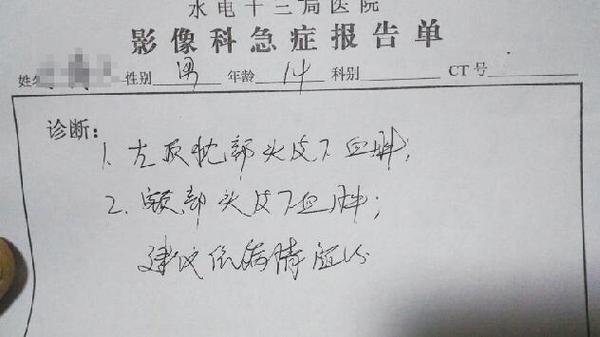 水电十三局医院
影像科急症报告单
姓名 性别 男 年龄 14 科别 CT号
诊断：
1. 左顶枕部头皮下血肿；
2. 额部头皮下血肿；
建议依病情